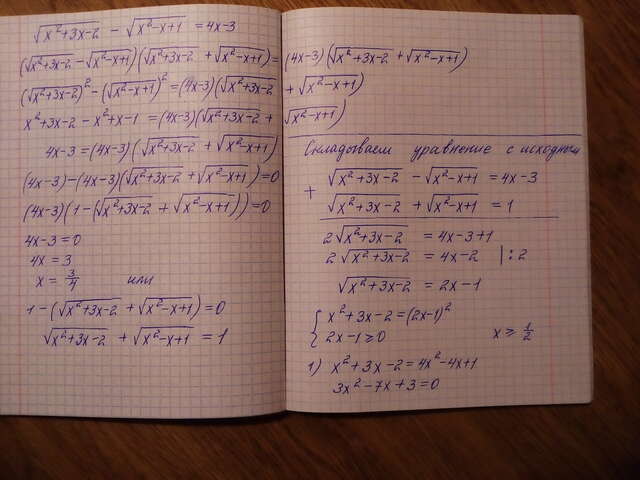 √(x²+3x-2) - √(x²-x+1) = 4x-3
(√(x²+3x-2) - √(x²-x+1))(√(x²+3x-2) + √(x²-x+1)) = (4x-3)(√(x²+3x-2) + √(x²-x+1))
(√(x²+3x-2))² - (√(x²-x+1))² = (4x-3)(√(x²+3x-2) + √(x²-x+1))
x²+3x-2 - x²+x-1 = (4x-3)(√(x²+3x-2) + √(x²-x+1))
4x-3 = (4x-3)(√(x²+3x-2) + √(x²-x+1))
(4x-3) - (4x-3)(√(x²+3x-2) + √(x²-x+1)) = 0
(4x-3)(1 - (√(x²+3x-2) + √(x²-x+1))) = 0
4x-3 = 0
4x = 3
x = 3/4 или
1 - (√(x²+3x-2) + √(x²-x+1)) = 0
√(x²+3x-2) + √(x²-x+1) = 1
Складываем уравнение с исходным
+ √(x²+3x-2) - √(x²-x+1) = 4x-3
√(x²+3x-2) + √(x²-x+1) = 1
2√(x²+3x-2) = 4x-3+1
2√(x²+3x-2) = 4x-2 |:2
√(x²+3x-2) = 2x-1
{ x²+3x-2 = (2x-1)²
2x-1 ≥ 0 x ≥ 1/2
1) x²+3x-2 = 4x²-4x+1
3x²-7x+3 = 0